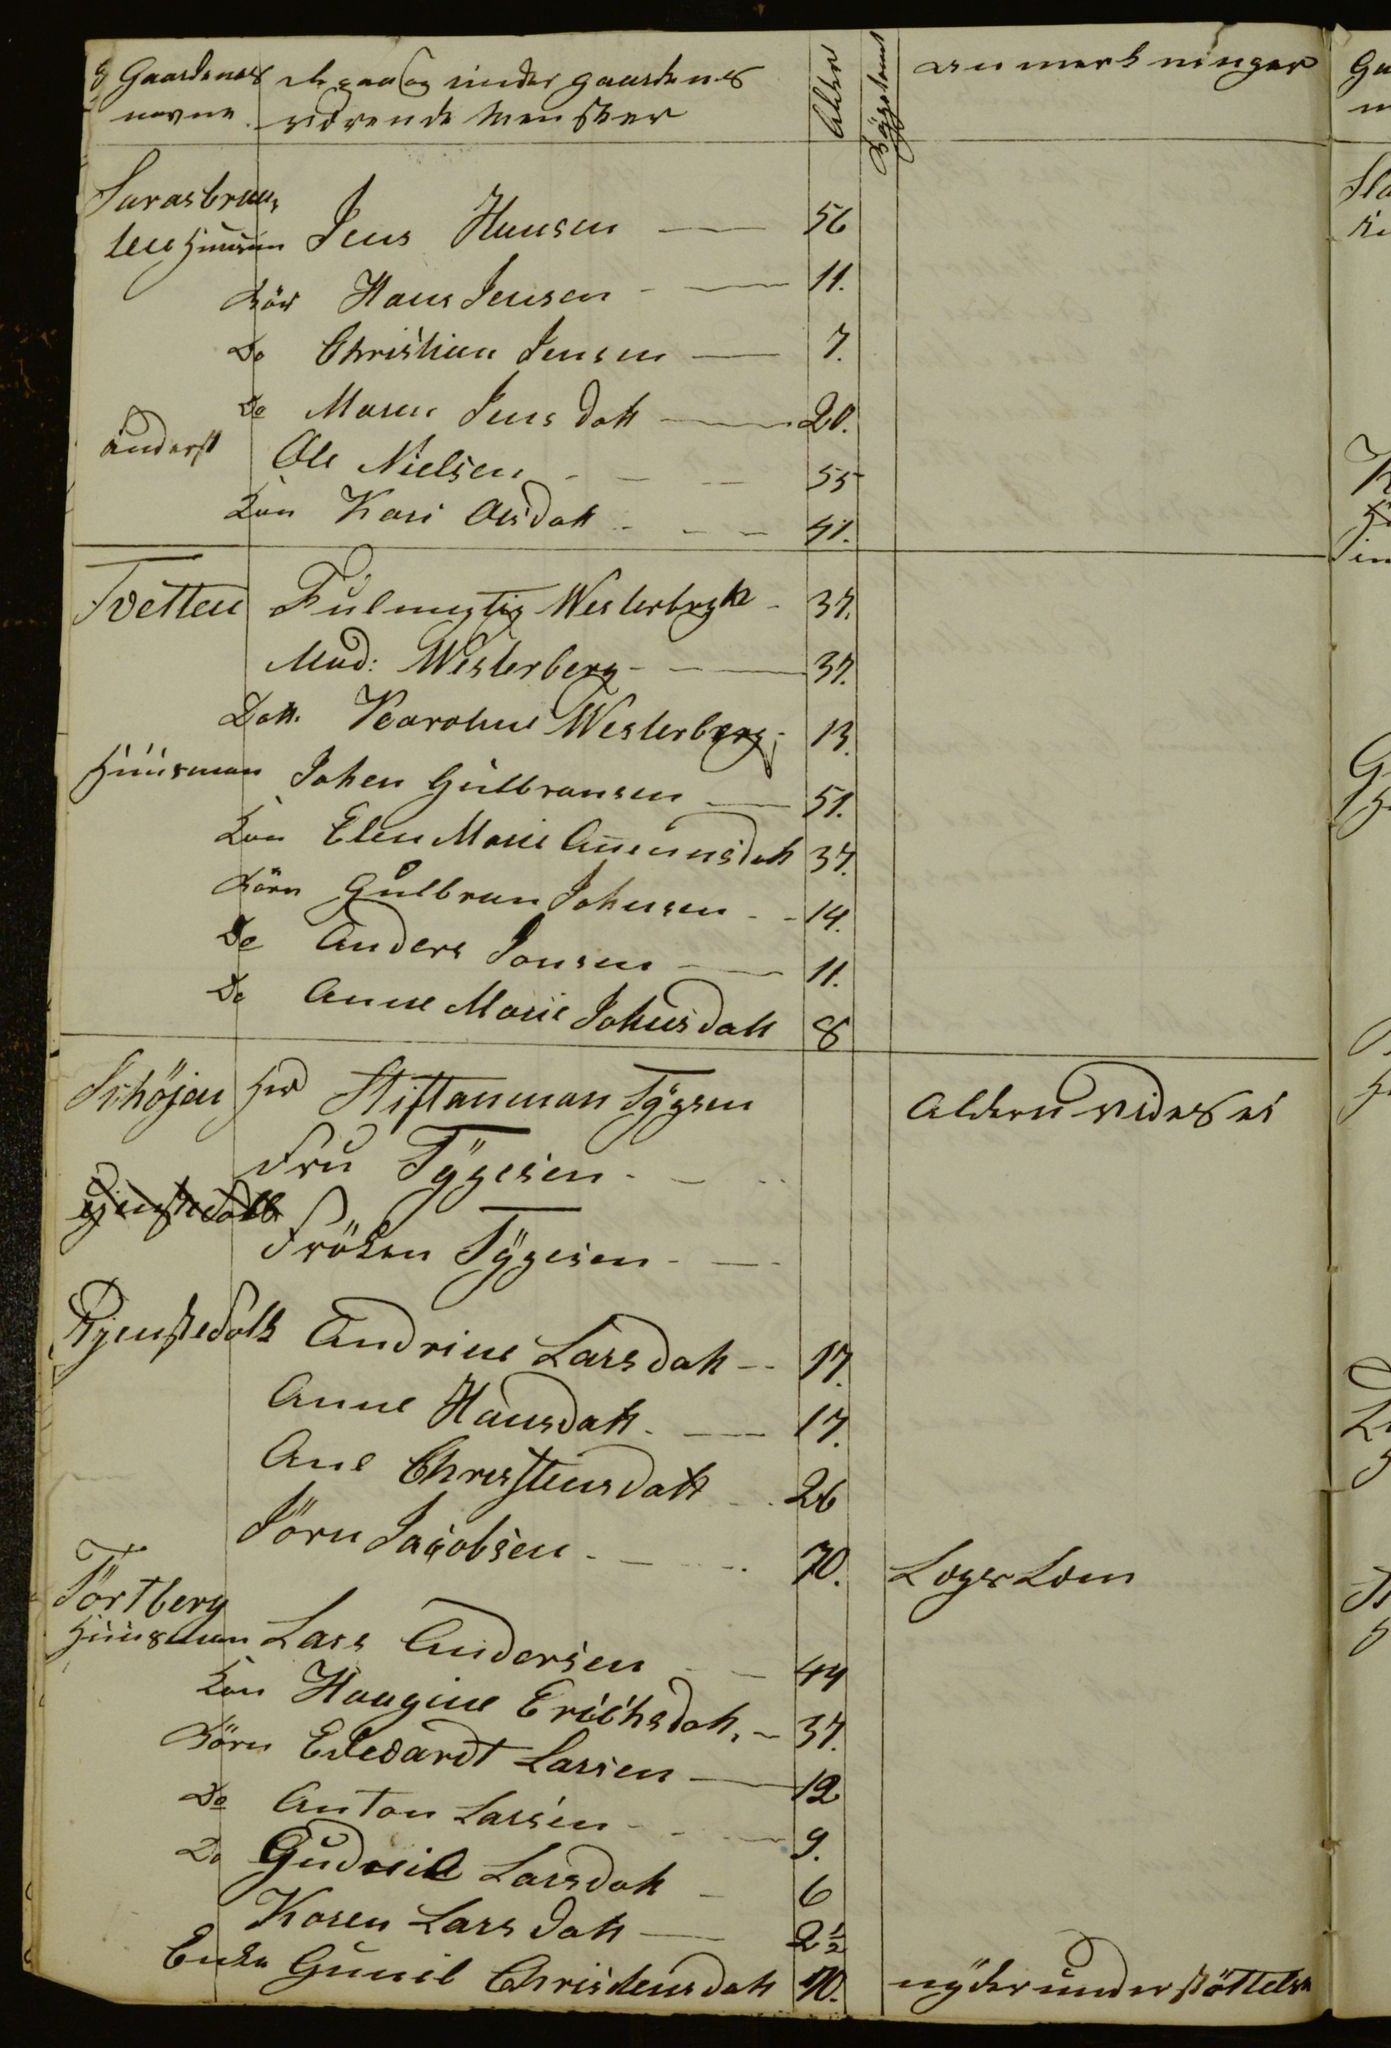 Gaardenes de paa og under gaardens Alder Anmerkninger
navne værende Mensker
Sarasbraa,
ten Huusm Jens Hansen 56
Bör Hans Jensen 11.
Do Christian Jensen 7.
Do Maren Jensdatt 20.
inderst Ole Nielsen 55
Kon Kari Olsdatt 41.
Tvetten Fulmegtig Westerbergh 37.
Mad: Westerberg 37.
Datt. Karoline Westerberg 13.
Huusman Johen Gulbransen 51.
Kon Elen Marie Amundsdatt 37.
Börn Gulbran Johnsen 14.
Do Anders Jonsen 11.
Do Anne Marie Johnsdatt 8
Schöjen Her Stiftamman Tÿgesen Alderen vides ei
Fru Tÿgesen
Tjenstefolk
Fröken Tÿgesen
Tjenstefolk Andrine Larsdatt 17.
Anne Hansdatt 17.
Ane Christensdatt 26
Jörn Jacobsen 70. Logerende
Törtberg
Huusman Lars Andersen 44
Kon Haagine Erichsdatt. 37.
Börn Edevardt Larsen 12
Do Anton Larsen 9.
Do Larsdatt 6
Karen Larsdatt 2½
Enke Gunil Christensdatt 70. nyder understöttelse